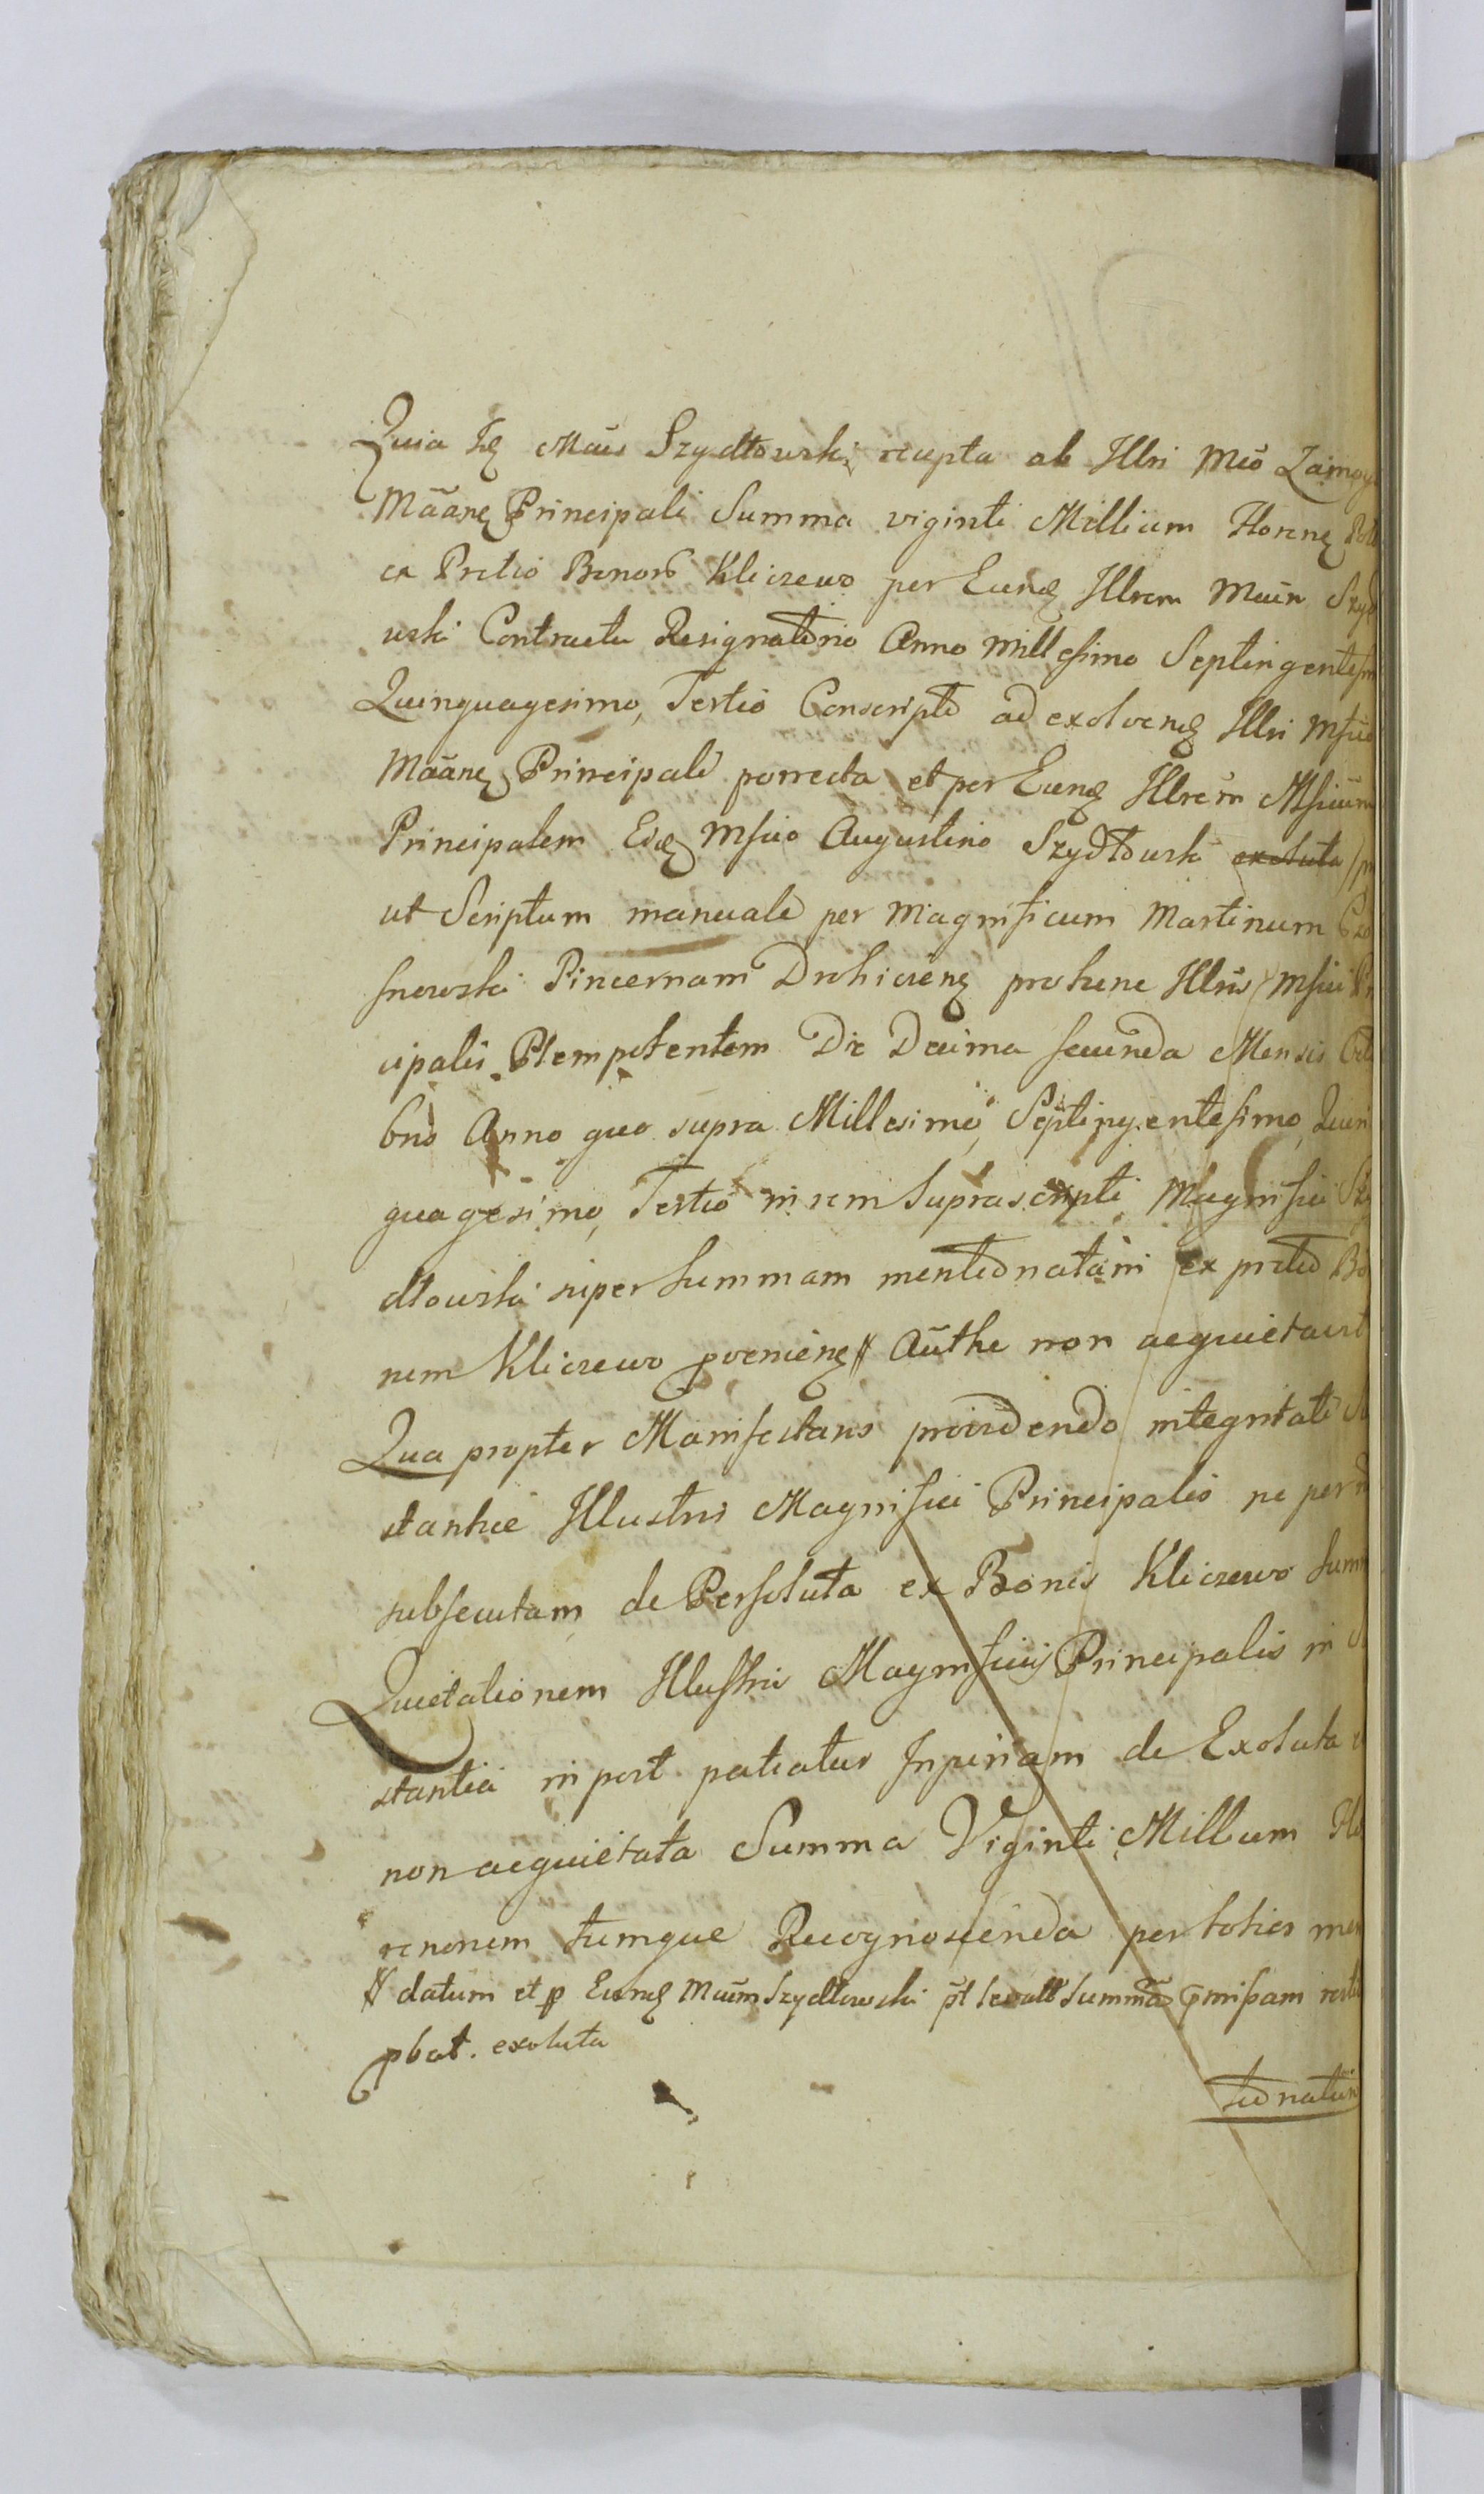 Quia Is Mcus Szydłowski, recepta ab Illri Mco Zamoy
Māane Principali Summa viginti Millium Floreno Poll
ex Pretio Bonorō Kliczewo per Eund Illrem Mcum Szyd
wski Contractu Resignatorio Anno Millesimo Septingentesim
Quinquagesimo, Tertio Conscripto ad exolvend Illri Mfico
Māane Principali porrecta et per Eund Illrem Mficum
Principalem Eid Mfico Augustino Szydłowski exoluta
ut Scriptum manuale per Magnificum Martinum
snowski Pincernam Drohicien protunc Illris Mfici Prin
cipalis Plempotentem Die Decima secunda Mensis Octo
bris Anno quo supra Millesimo, Septingentesimo, Quin
quagesimo, Tertio in rem Suprascripti Magnifici Szy
dłowski super Summam mentionatam ex pretio Bo
num Kliczewo proveniens # Authce non acquietavit
Qua propter Manifestans providendo integritati
stantiae Illustris Magnifici Principalis ne per
subsecutam de Persoluta ex Bonis Kliczewo Summ
Quietationem Illustris Magnifici Principalis in
stantia in post patiatur Injuriam de Exoluta
non acquietata Summa Viginti Millium Flo
renorum tumque Recognoscenda per toties men
# datum et p Eund Mcum Szydłowski Summa pmissam
pbat. exoluta
tionatum